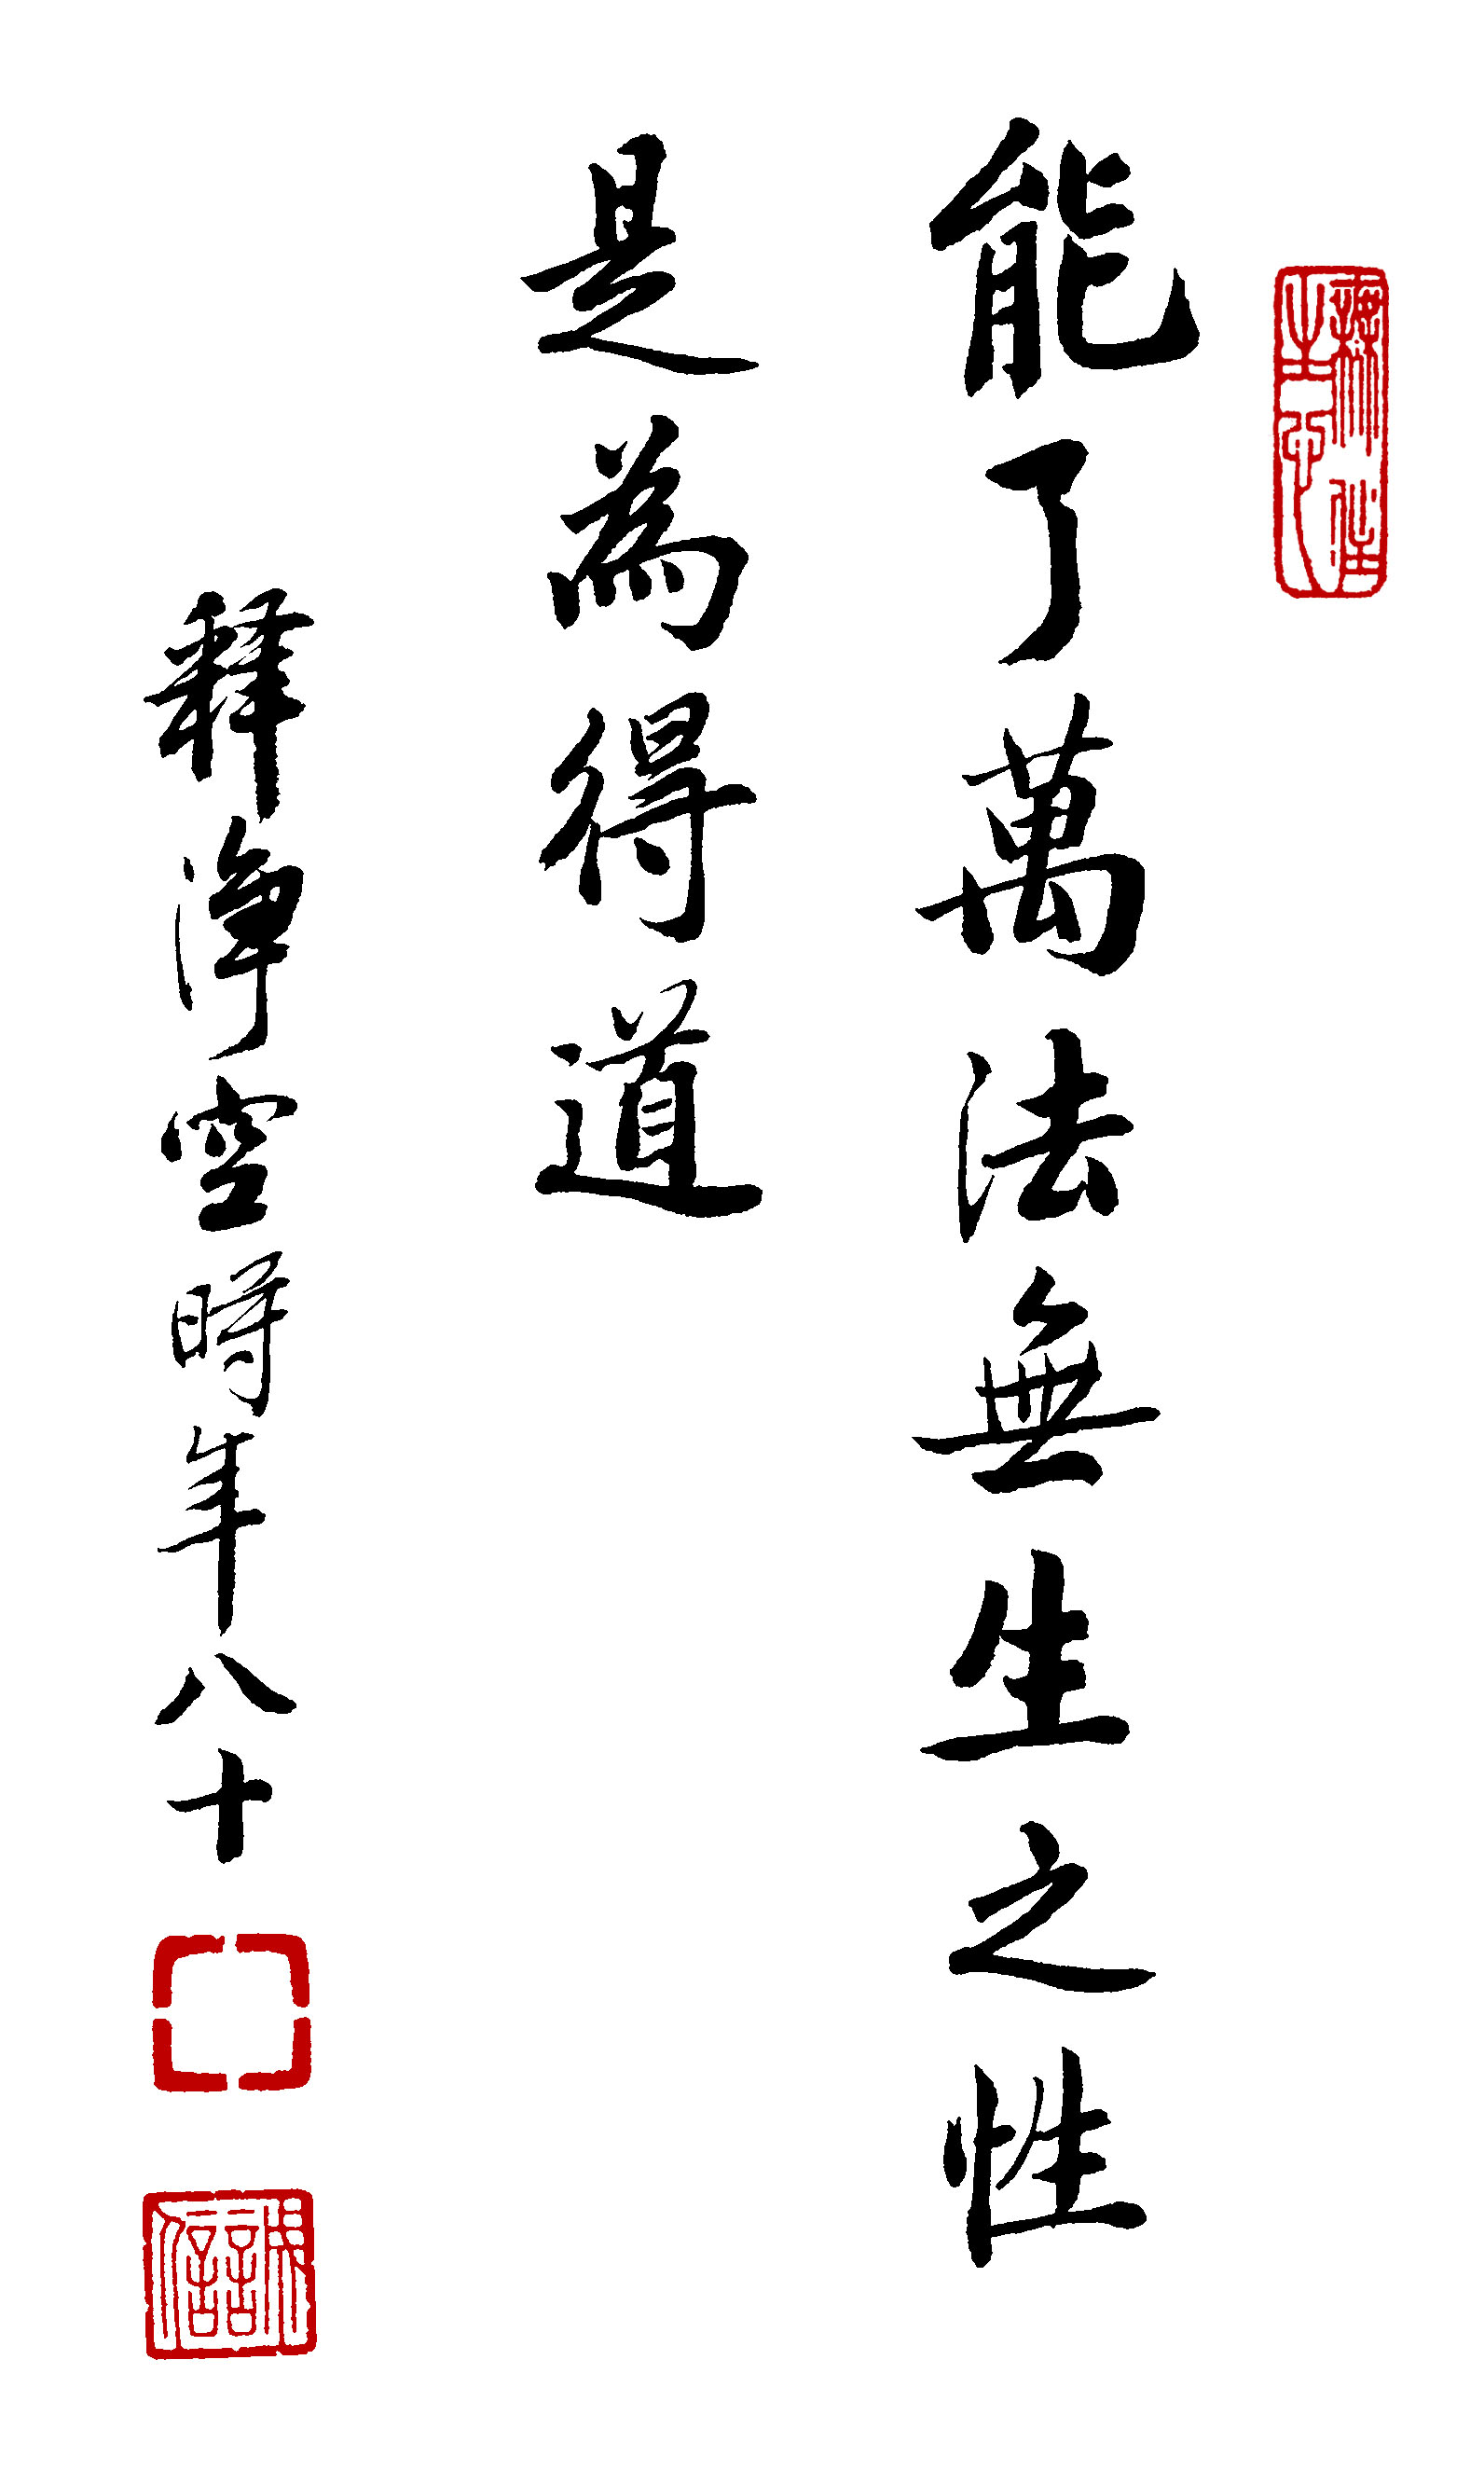 能了萬法無生之性
是為得道
釋淨空時年八十